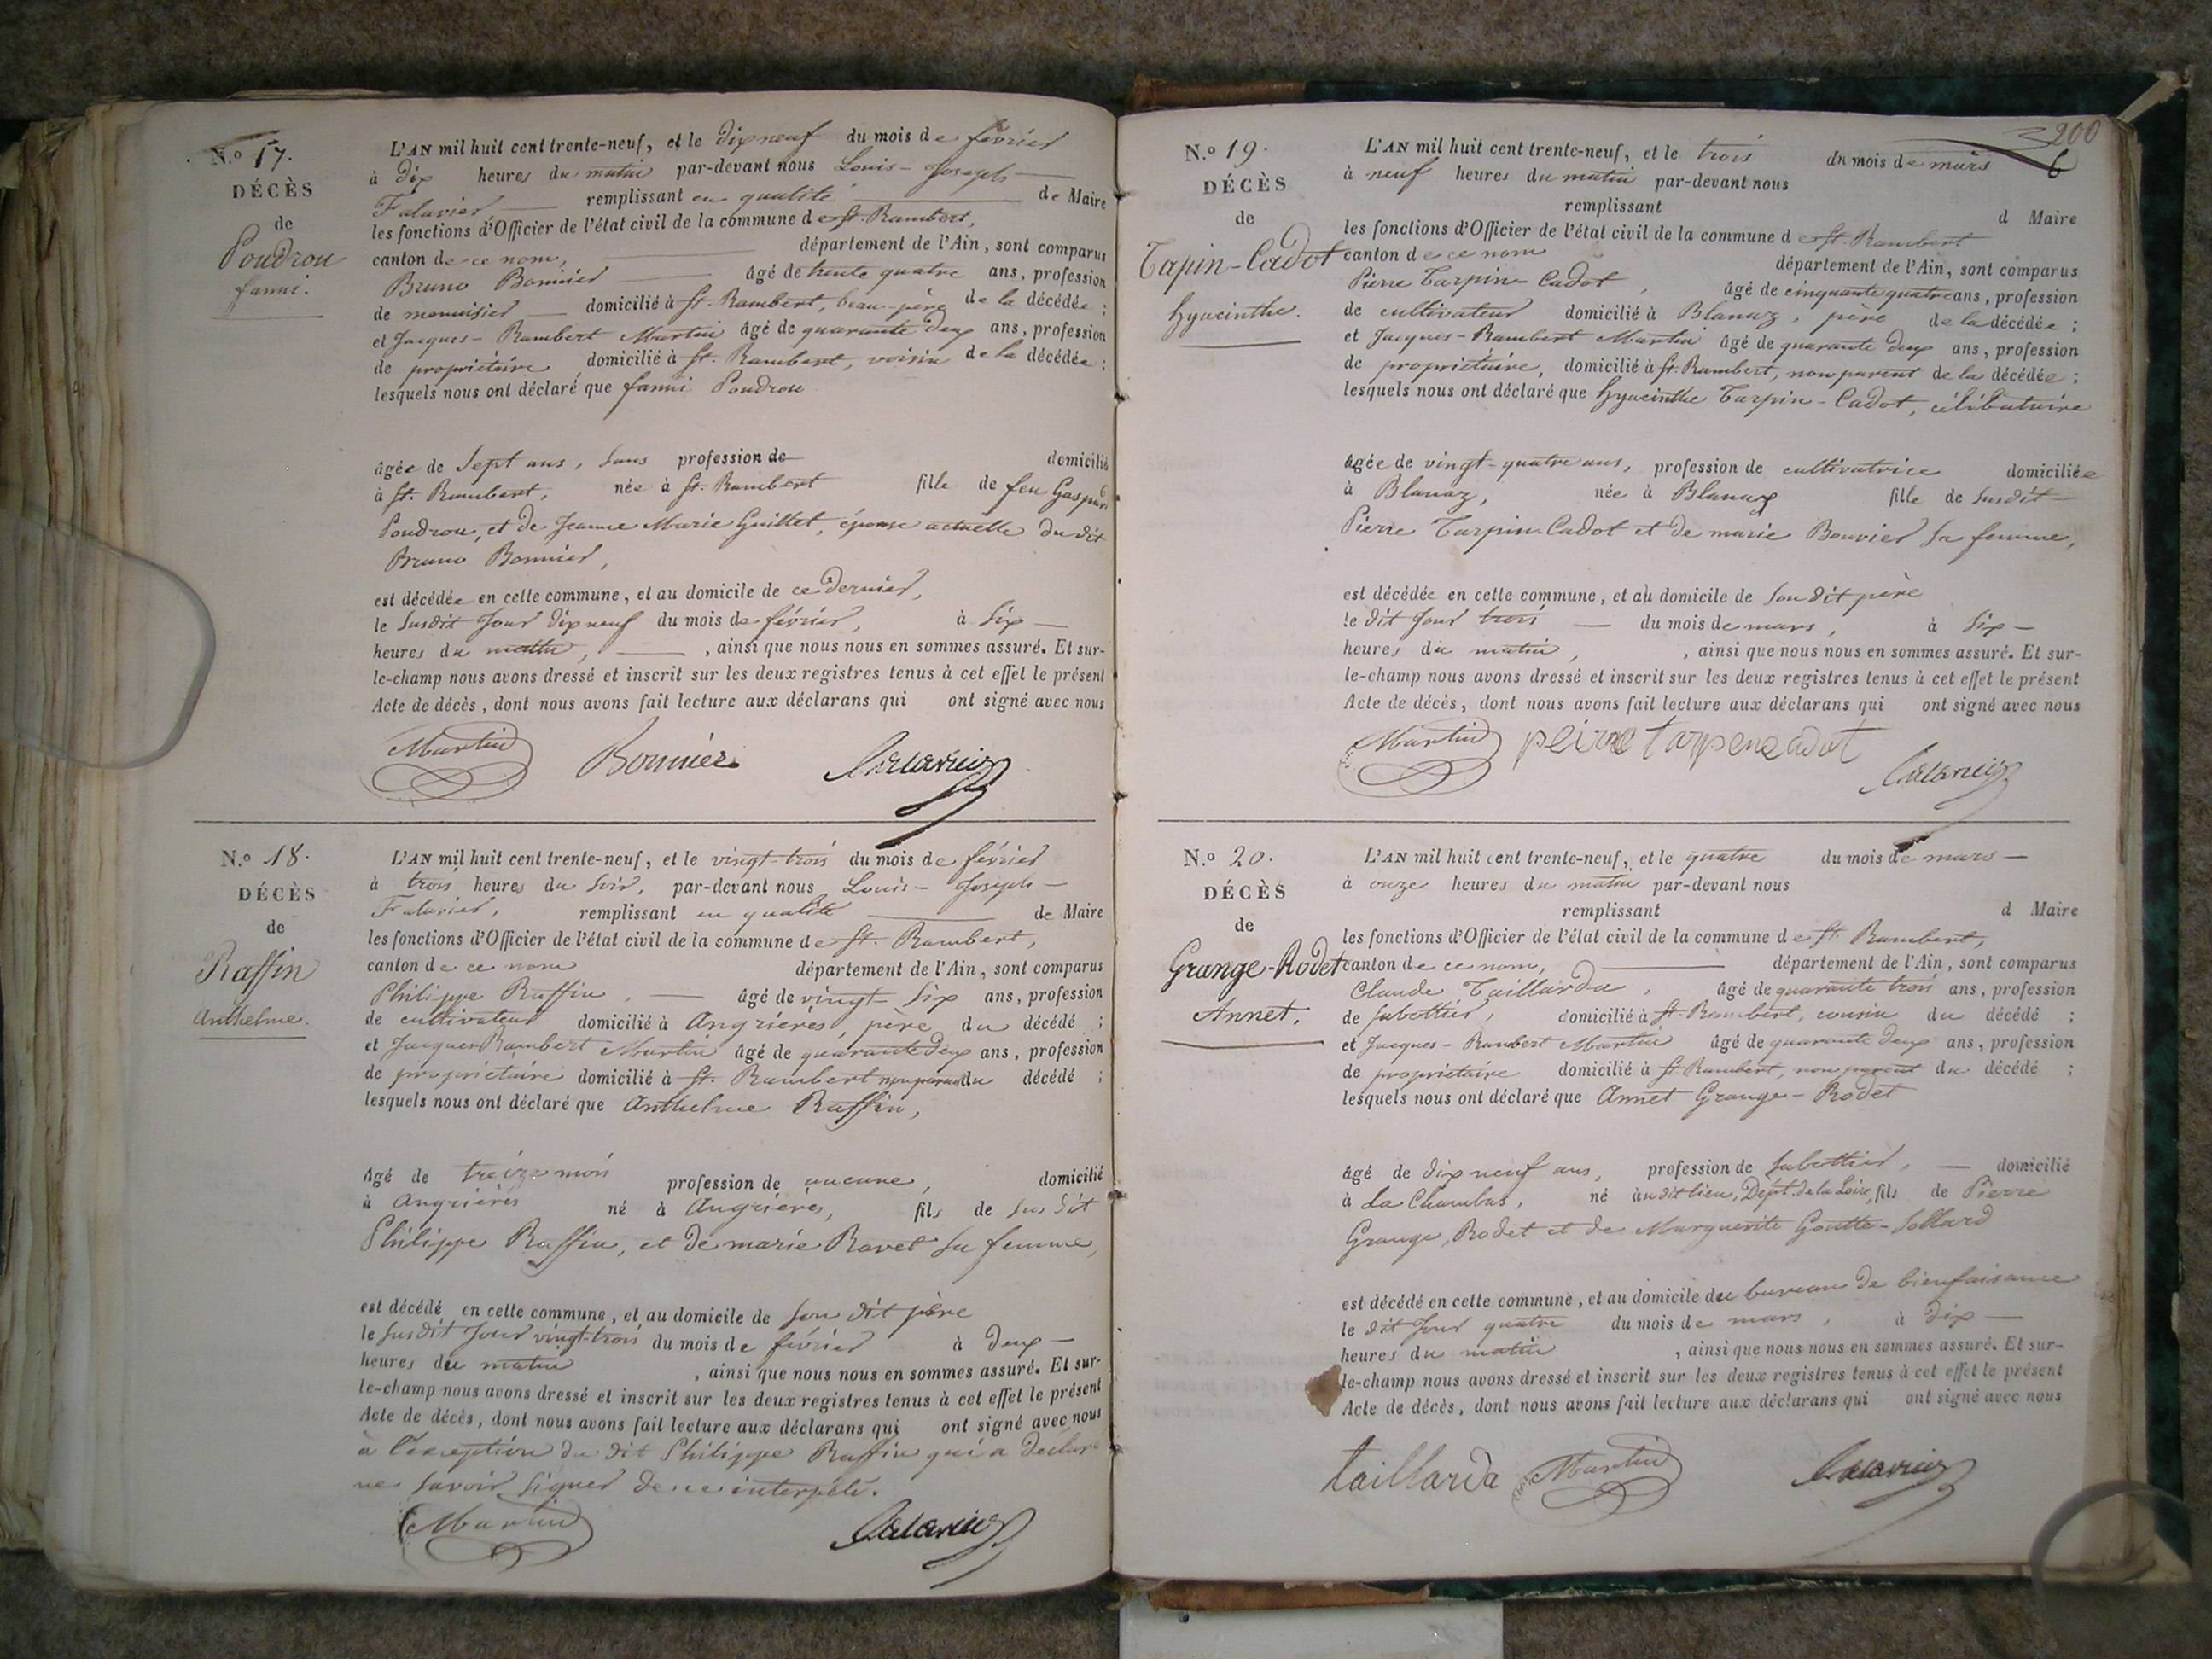 N.o 17.
DÉCÈS
de
Poudron
fanni.
L'AN mil huit cent trente-neuf, et le dix neuf du mois de février
à dix heures du matin par-devant nous Louis-Joseph
Falavier remplissant en qualité de Maire
les fonctions d'Officier de l'état civil de la commune de St. Rambert,
canton de ce nom, département de l'Ain, sont comparus
Bruno Bonnier âgé de trente quatre ans, profession
de menuisier domicilié à St. Rambert, beau-père de la décédée ;
et Jacques-Rambert Martin âgé de quarante deux ans, profession
de propriétaire domicilié à St. Rambert, voisin de la décédée ;
lesquels nous ont déclaré que fanni Poudron
âgée de Sept ans, Sans profession de domicilié
à St. Rambert, née à St. Rambert fille de feu Gaspard
Poudron, et de Jeanne Marie Guillet, épouse actuelle du dit
Bruno Bonnier,
est décédée en cette commune, et au domicile de ce dernier,
le Susdit Jour dix neuf du mois de février, à Six
heures du matin, , ainsi que nous nous en sommes assuré. Et sur-
le-champ nous avons dressé et inscrit sur les deux registres tenus à cet effet le présent
Acte de décès, dont nous avons fait lecture aux déclarans qui ont signé avec nous
Martin Bonnier Falavier
N.o 18.
DÉCÈS
de
Raffin
Anthelme.
L'AN mil huit cent trente-neuf, et le vingt-trois du mois de février
à trois heures du Soir, par-devant nous Louis-Joseph
Falavier, remplissant en qualité de Maire
les fonctions d'Officier de l'état civil de la commune de St. Rambert,
canton de ce nom département de l'Ain, sont comparus
Philippe Raffin, âgé de vingt Six ans, profession
de cultivateur domicilié à Angrières, père du décédé ;
et Jacques Rambert Martin âgé de quarante deux ans, profession
de propriétaire domicilié à St. Rambert non parent du décédé ;
lesquels nous ont déclaré que Anthelme Raffin,
âgé de treize mois profession de aucune, domicilié
à Angrières né à Angrières, fils de Sus dit
Philippe Raffin, et de marie Ravet Sa femme,
est décédé en cette commune, et au domicile de Son dit père
le Susdit Jour vingt-trois du mois de février à deux
heures du matin , ainsi que nous nous en sommes assuré. Et sur-
le-champ nous avons dressé et inscrit sur les deux registres tenus à cet effet le présent
Acte de décès, dont nous avons fait lecture aux déclarans qui ont signé avec nous
à l'exception du dit Philippe Raffin qui a déclaré
ne Savoir Signer de ce interpélé.
Martin Falavier
200
6
N.o 19.
DÉCÈS
de
Tapin-Cadot
hyacinthe.
L'AN mil huit cent trente-neuf, et le trois du mois de mars
à neuf heures du matin par-devant nous
remplissant d Maire
les fonctions d'Officier de l'état civil de la commune de St. Rambert
canton de ce nom département de l'Ain, sont comparus
Pierre Tarpin-Cadot, âgé de cinquante quatre ans, profession
de cultivateur domicilié à Blanaz, père de la décédée ;
et Jacques-Rambert Martin âgé de quarante deux ans, profession
de propriétaire, domicilié à St. Rambert, non parent de la décédée ;
lesquels nous ont déclaré que hyacinthe Tarpin-Cadot, célibataire
âgée de vingt-quatre ans, profession de cultivatrice domiciliée
à Blanaz, née à Blanaz fille de Susdit
Pierre Tarpin-Cadot et de marie Bouvier Sa femme,
est décédée en cette commune, et au domicile de Son dit père
le dit Jour trois du mois de mars, à Six
heures du matin, , ainsi que nous nous en sommes assuré. Et sur-
le-champ nous avons dressé et inscrit sur les deux registres tenus à cet effet le présent
Acte de décès, dont nous avons fait lecture aux déclarans qui ont signé avec nous
Martin peirre tarpencadot Falavier
N.o 20.
DÉCÈS
de
Grange-Rodet
Annet.
L'AN mil huit cent trente-neuf, et le quatre du mois de mars
à onze heures du matin par-devant nous
remplissant d Maire
les fonctions d'Officier de l'état civil de la commune de St. Rambert,
canton de ce nom, département de l'Ain, sont comparus
Claude Taillarda, âgé de quarante trois ans, profession
de Sabottier, domicilié à St. Rambert, cousin du décédé ;
et Jacques-Rambert Martin âgé de quarante deux ans, profession
de propriétaire domicilié à St. Rambert, non parent du décédé ;
lesquels nous ont déclaré que Annet Grange-Rodet
âgé de dix neuf ans, profession de Sabottier, domicilié
à La Chambas, né au dit lieu, Dépt. de la Loire, fils de Pierre
Grange, Rodet et de Marguerite Goutte-Sollard
est décédé en cette commune, et au domicile du bureau de bienfaisance
le dit Jour quatre du mois de mars, à dix
heures du matin , ainsi que nous nous en sommes assuré. Et sur-
le-champ nous avons dressé et inscrit sur les deux registres tenus à cet effet le présent
Acte de décès, dont nous avons fait lecture aux déclarans qui ont signé avec nous
taillarda Martin Falavier